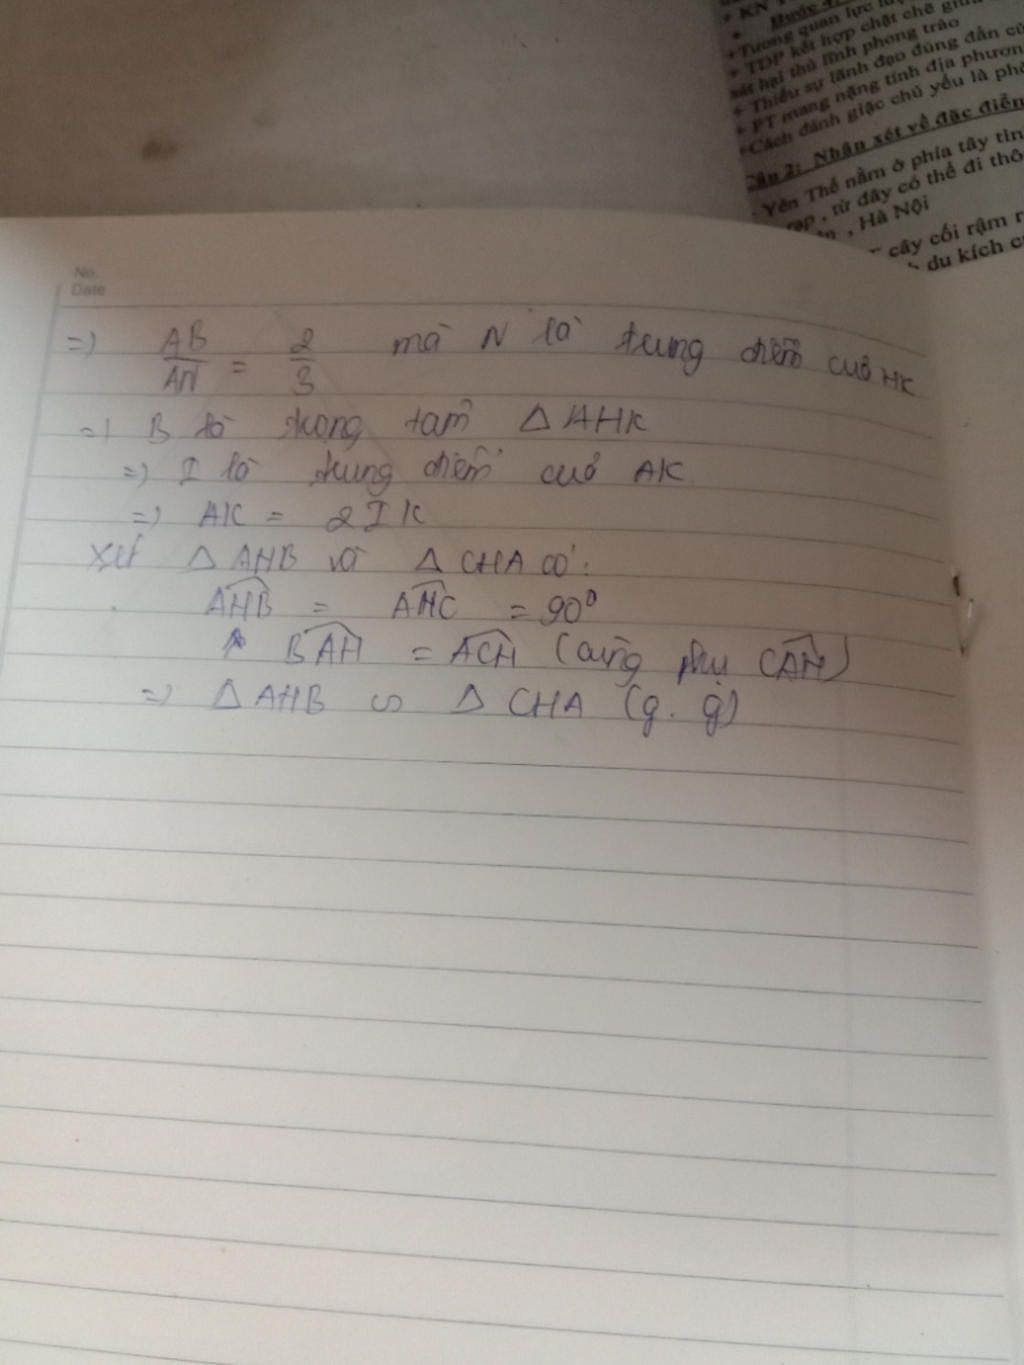 + KN
Bước 4
+Tương quan lực
+ TDP kết hợp chặt chẽ giữa
sát hại thủ lĩnh phong trào
+ Thiếu sự lãnh đạo đúng đắn củ
+ PT mang nặng tính địa phươn
+Cách đánh giặc chủ yếu là phò
Câu 2: Nhận xét về đặc điểm
- Yên Thế nằm ở phía tây tỉn
rạp , từ đây có thể đi thô
, Hà Nội
cây cối rậm r
du kích c
No.
Date
=> AB/AN = 2/3 mà N là trung điểm của HK
=> B là trọng tâm △ AHK
=> I là trung điểm của AK
=> AK = 2IK
Xét △ AHB và △ CHA có:
AHB = AHC = 90⁰
BAH = ACH (cùng phụ CAH)
=> △ AHB ∽ △ CHA (g.g)